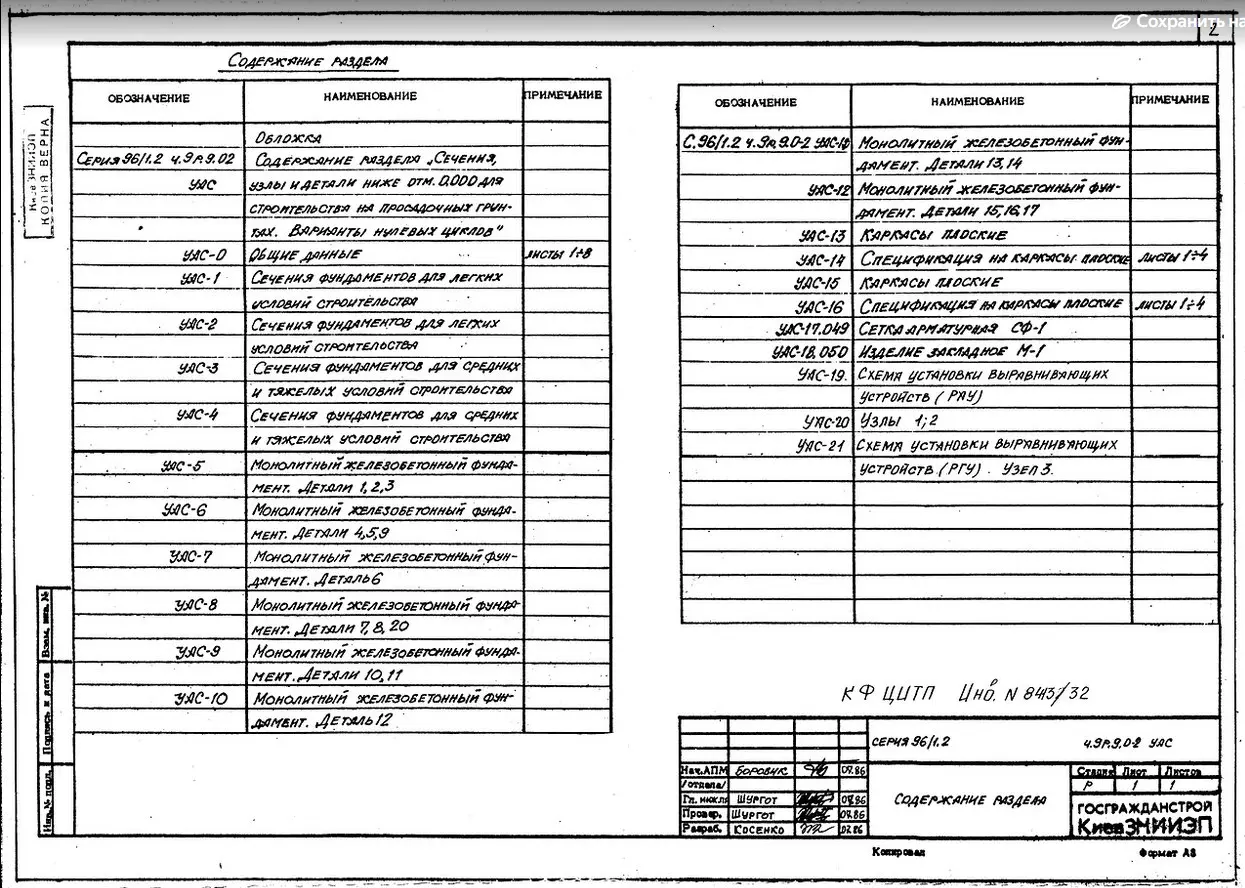 Сохранить на
2
СОДЕРЖАНИЕ РАЗДЕЛА
КиевЗНИИЭП
КОПИЯ ВЕРНА
ОБОЗНАЧЕНИЕ НАИМЕНОВАНИЕ ПРИМЕЧАНИЕ
ОБЛОЖКА
СЕРИЯ 96/1.2 ч.9р.9.02 СОДЕРЖАНИЕ РАЗДЕЛА „СЕЧЕНИЯ,
УАС УЗЛЫ И ДЕТАЛИ НИЖЕ ОТМ. 0.000 ДЛЯ
СТРОИТЕЛЬСТВА НА ПРОСАДОЧНЫХ ГРУН-
ТАХ. ВАРИАНТЫ НУЛЕВЫХ ЦИКЛОВ"
УАС-0 ОБЩИЕ ДАННЫЕ ЛИСТЫ 1÷8
УАС-1 СЕЧЕНИЯ ФУНДАМЕНТОВ ДЛЯ ЛЕГКИХ
УСЛОВИЙ СТРОИТЕЛЬСТВА
УАС-2 СЕЧЕНИЯ ФУНДАМЕНТОВ ДЛЯ ЛЕГКИХ
УСЛОВИЙ СТРОИТЕЛЬСТВА
УАС-3 СЕЧЕНИЯ ФУНДАМЕНТОВ ДЛЯ СРЕДНИХ
И ТЯЖЕЛЫХ УСЛОВИЙ СТРОИТЕЛЬСТВА
УАС-4 СЕЧЕНИЯ ФУНДАМЕНТОВ ДЛЯ СРЕДНИХ
И ТЯЖЕЛЫХ УСЛОВИЙ СТРОИТЕЛЬСТВА
УАС-5 МОНОЛИТНЫЙ ЖЕЛЕЗОБЕТОННЫЙ ФУНДА-
МЕНТ. ДЕТАЛИ 1,2,3
УАС-6 МОНОЛИТНЫЙ ЖЕЛЕЗОБЕТОННЫЙ ФУНДА-
МЕНТ. ДЕТАЛИ 4,5,9
УАС-7 МОНОЛИТНЫЙ ЖЕЛЕЗОБЕТОННЫЙ ФУН-
ДАМЕНТ. ДЕТАЛЬ 6
УАС-8 МОНОЛИТНЫЙ ЖЕЛЕЗОБЕТОННЫЙ ФУНДА-
МЕНТ. ДЕТАЛИ 7,8,20
УАС-9 МОНОЛИТНЫЙ ЖЕЛЕЗОБЕТОННЫЙ ФУНДА-
МЕНТ. ДЕТАЛИ 10,11
УАС-10 МОНОЛИТНЫЙ ЖЕЛЕЗОБЕТОННЫЙ ФУН-
ДАМЕНТ. ДЕТАЛЬ 12
ОБОЗНАЧЕНИЕ НАИМЕНОВАНИЕ ПРИМЕЧАНИЕ
С.96/1.2 ч.9р.9.0-2 УАС-11 МОНОЛИТНЫЙ ЖЕЛЕЗОБЕТОННЫЙ ФУН-
ДАМЕНТ. ДЕТАЛИ 13,14
УАС-12 МОНОЛИТНЫЙ ЖЕЛЕЗОБЕТОННЫЙ ФУН-
ДАМЕНТ. ДЕТАЛИ 15,16,17
УАС-13 КАРКАСЫ ПЛОСКИЕ
УАС-14 СПЕЦИФИКАЦИЯ НА КАРКАСЫ ПЛОСКИЕ ЛИСТЫ 1÷4
УАС-15 КАРКАСЫ ПЛОСКИЕ
УАС-16 СПЕЦИФИКАЦИЯ НА КАРКАСЫ ПЛОСКИЕ ЛИСТЫ 1÷4
УАС-17.049 СЕТКА АРМАТУРНАЯ СФ-1
УАС-18.050 ИЗДЕЛИЕ ЗАКЛАДНОЕ М-1
УАС-19. СХЕМА УСТАНОВКИ ВЫРАВНИВАЮЩИХ
УСТРОЙСТВ (РАУ)
УАС-20 УЗЛЫ 1;2
УАС-21 СХЕМА УСТАНОВКИ ВЫРАВНИВАЮЩИХ
УСТРОЙСТВ (РГУ). УЗЕЛ 3.
КФ ЦИТП Инв. N 8413/32
СЕРИЯ 96/1.2 ч.9р.9.0-2 УАС
Нач.АПМ БОРОВИК 07.86
/отдела/
Гл. инж.пр ШУРГОТ 07.86
Провер. ШУРГОТ 07.86
Разраб. КОСЕНКО 07.86
СОДЕРЖАНИЕ РАЗДЕЛА
Стадия Лист Листов
Р 1 1
ГОСГРАЖДАНСТРОЙ
КиевЗНИИЭП
Копировал Формат А3
Взам. инв. №
Подпись и дата
Инв. № подл.